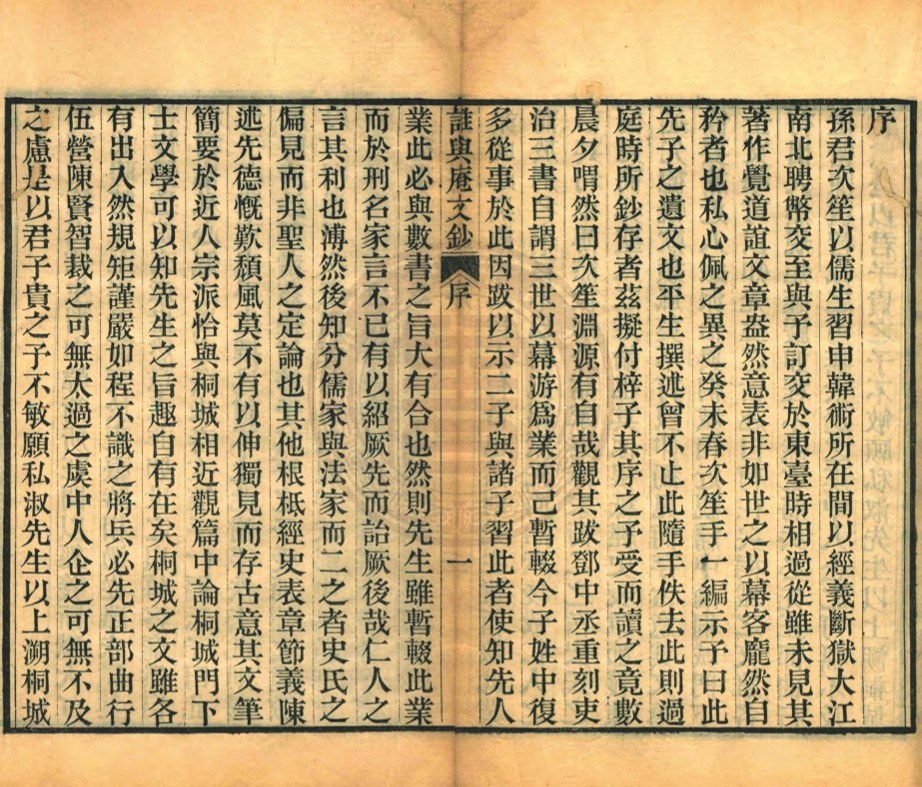 序
孫君次笙以儒生習申韓術所在間以經義斷獄大江
南北聘幣交至與予訂交於東臺時相過從雖未見其
著作覺道誼文章盎然意表非如世之以幕客龐然自
矜者也私心佩之異之癸未春次笙手一編示予曰此
先子之遺文也平生撰述曾不止此隨手佚去此則過
庭時所鈔存者茲擬付梓子其序之予受而讀之竟數
晨夕喟然曰次笙淵源有自哉觀其跋鄧中丞重刻吏
治三書自謂三世以幕游為業而己暫輟今子姓中復
多從事於此因跋以示二子與諸子習此者使知先人
誰與庵文鈔 序 一
業此必與數書之旨大有合也然則先生雖暫輟此業
而於刑名家言不已有以紹厥先而詒厥後哉仁人之
言其利也溥然後知分儒家與法家而二之者史氏之
偏見而非聖人之定論也其他根柢經史表章節義陳
述先德慨歎頹風莫不有以伸獨見而存古意其文筆
簡要於近人宗派恰與桐城相近觀篇中論桐城門下
士文學可以知先生之旨趣自有在矣桐城之文雖各
有出入然規矩謹嚴如程不識之將兵必先正部曲行
伍營陳賢智裁之可無太過之虞中人企之可無不及
之慮是以君子貴之予不敏願私淑先生以上溯桐城